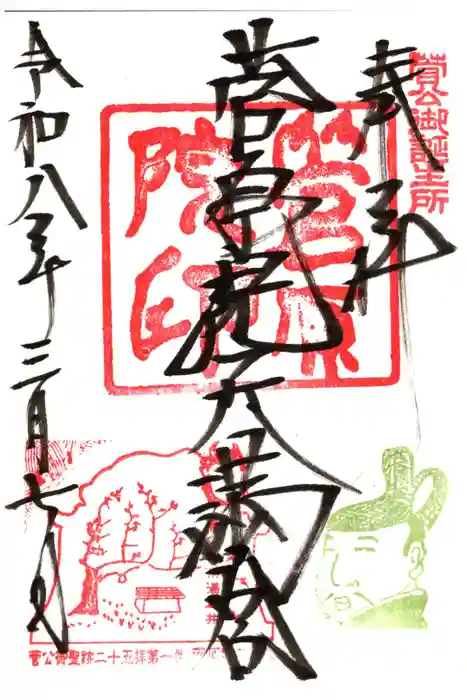 菅公御誕生所
奉拝
菅原院天満宮
菅原院印
令和八年三月七日
菅公御聖跡二十五拝第一